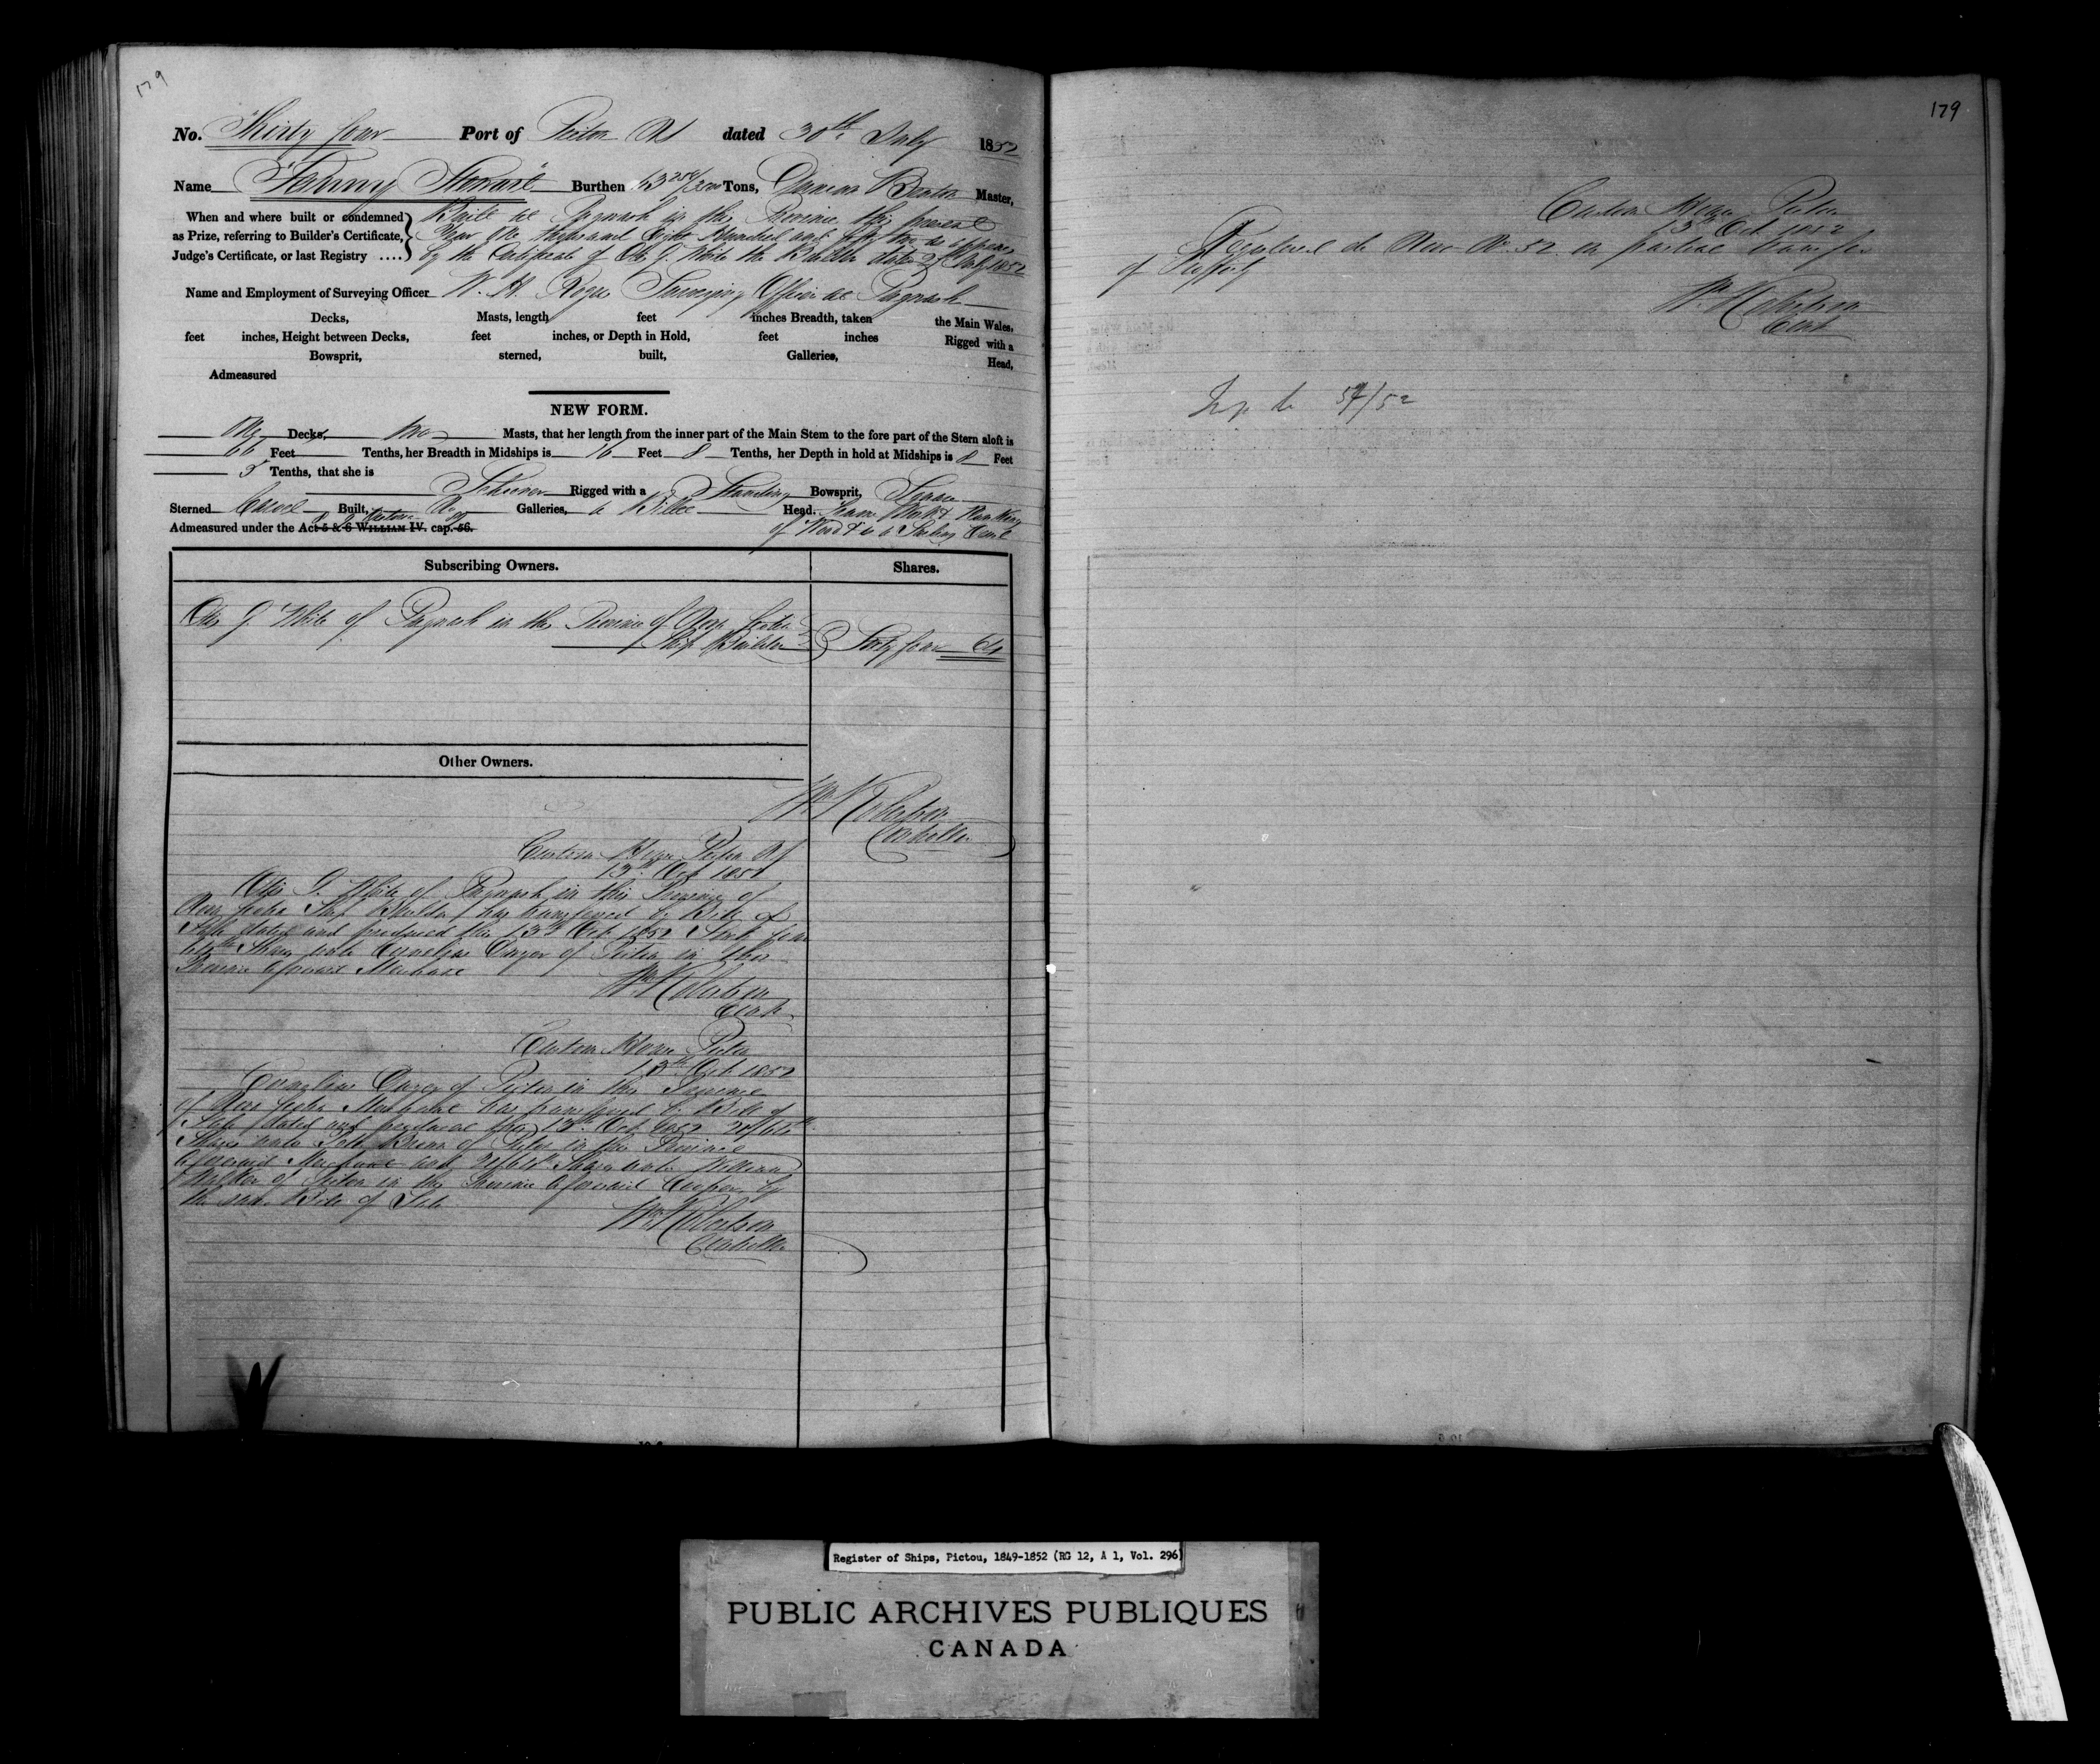 179
No. Thirty four Port of Pictou NS dated 30th July 1852
Name "Fanny Stewart" Burthen 63 Tons, Master,
When and where built or condemned as Prize, referring to Builder's Certificate, Judge's Certificate, or last Registry .... } Built at Pugwash in this Province this present
Year One thousand Eight Hundred and fifty two as appears
by the Certificate of Otis G. White the Builder dated July 1852
Name and Employment of Surveying Officer W. H. Surveying Officer at Pugwash
Decks, Masts, length feet inches Breadth, taken the Main Wales,
feet inches, Height between Decks, feet inches, or Depth in Hold, feet inches Rigged with a
Bowsprit, sterned, built, Galleries, Head,
Admeasured
NEW FORM.
One Decks, two Masts, that her length from the inner part of the Main Stem to the fore part of the Stern aloft is
66 Feet Tenths, her Breadth in Midships is 16 Feet 8 Tenths, her Depth in hold at Midships is 8 Feet
5 Tenths, that she is
Schooner Rigged with a Standing Bowsprit, Square
Sterned Carvel Built, No Galleries, a Billet Head.
Admeasured under the Act 5 & 6 WILLIAM IV. cap. 56.
of Wood & is a Sailing
Subscribing Owners. Shares.
Otis G. White of Pugwash in the Province of Nova Scotia
Ship Builder } Sixty four 64
Other Owners.
Wm Robertson
Controller
Custom House Pictou NS
13th Oct 1852
Otis G. White of Pugwash in this Province of
Nova Scotia Ship Builder has transferred by Bill of
Sale dated and produced this 13th Oct 1852 Sixty four
64th Shares unto Cornelius of Pictou in this
Province aforesaid Merchant
Wm Robertson
Custom House Pictou
13th Oct 1852
Cornelius of Pictou in this Province
of Nova Scotia Merchant has transferred by Bill of
Sale dated and produced this 13th Oct 1852 /64th
Shares unto of Pictou in the Province
aforesaid and /64th Shares unto William
of Pictou in the Province aforesaid by
the same Bill of Sale
Wm Robertson
Controller
179
Custom House Pictou
13th Oct 1852
Registered de Novo No. 52 on partial transfer
of Property
Wm Robertson
Register of Ships, Pictou, 1849-1852 (RG 12, A 1, Vol. 296)
PUBLIC ARCHIVES PUBLIQUES
CANADA